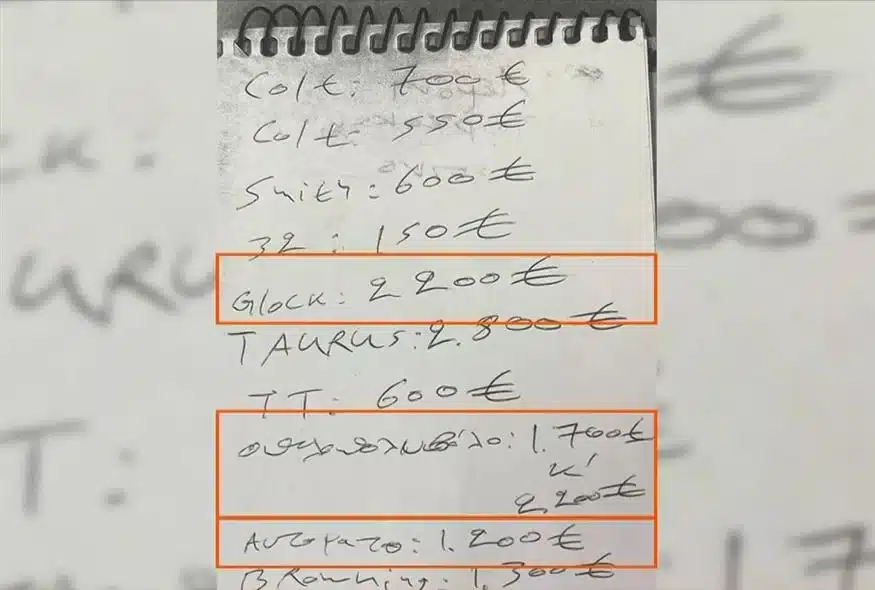 Colt: 700 €
Colt: 550 €
Smith: 600 €
32 : 150 €
Glock: 2200 €
TAURUS: 2.800 €
TT: 600 €
1.700€
κ'
2.200€
Αυτοματο: 1.200 €
Browning: 1.300 €